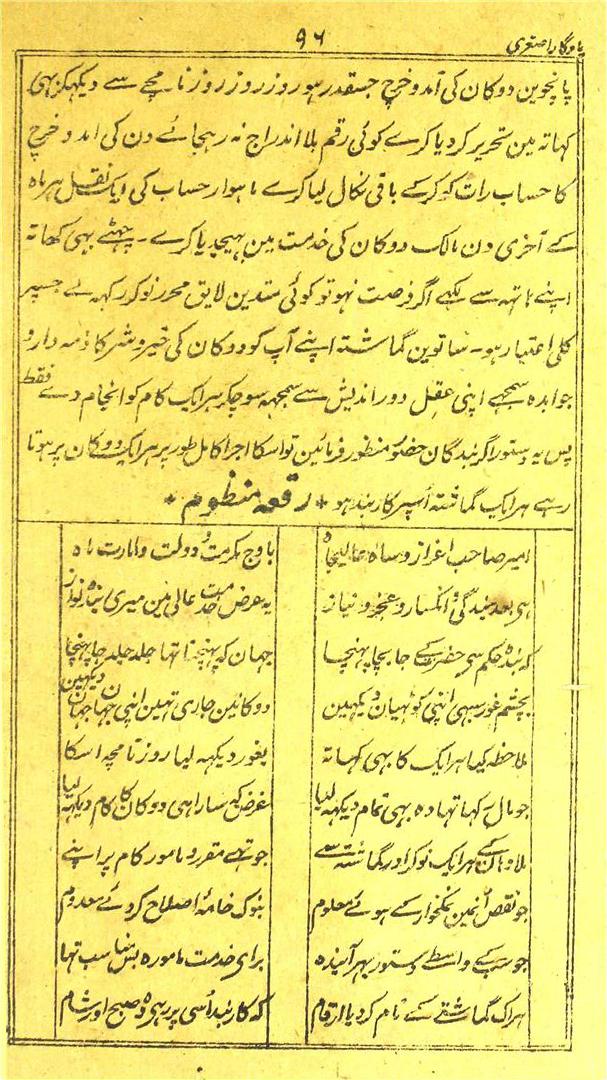 یادگار اصغری
۹۶
پانچوین دوکان کی آمد و خرچ جسقدر ہو روز روز روزنامچے سے دیکہکر بہی
کہاتہ مین تحریر کر دیا کرے کوئی رقم بلا اندراج نہ رہجائے دن کی آمد و خرچ
کا حساب رات کو کرکے باقی نکال لیا کرے ماہوار حساب کی ایک نقل ہر ماہ
کے آخری دن مالک دوکان کی خدمت مین بہیجدیا کرے۔ چہٹے بہی کہاتہ
اپنے ہاتہہ سے لکہے اگر فرصت نہو تو کوئی متدین لایق محرر نوکر رکہہ لے جسپر
کلی اعتبار ہو۔ ساتوین گماشتہ اپنے آپ کو دوکان کی خیر و شر کا ذمہ دار و
جوابدہ سمجہے اپنی عقل دور اندیش سے سمجہہ سوچکر ہر ایک کام کو انجام دے فقط
پس یہ دستور اگر بندگان حضور منظور فرمائین تو اسکا اجرا کامل طور پر ہر ایک دوکان پر ہوتا
رہے ہر ایک گماشتہ اسپر کاربند ہو * رقعہ منظوم *
امیر صاحب اعزاز و ساہ عالیجاہ
باوج مکرمت و دولت و امارت ماہ
ہی بعد بندگی و انکسار و عجز و نیاز
یہ عرض خدمت عالی مین میری بندہ نواز
کہ بندہ حکم سے حضرت کے جا بجا پہنچا
جہان کہ پہنچنا تہا جلد جلد جا پہنچا
بچشم غور سبہی اپنی کوٹہیان دیکہین
دوکانین جاری تہین اپنی جہان جہان دیکہین
ملاحظہ کیا ہر ایک کا بہی کہاتہ
بغور دیکہہ لیا روزنامچہ اسکا
جو مال کہا تہا وہ بہی تمام دیکہہ لیا
غرض کہ سارا ہی دوکان کا کام دیکہہ لیا
ملا وہان کے ہر ایک نوکر اور گماشتہ سے
جو تہے مقرر و مامور کام پر اپنے
جو نقص انمین نمکخوار کے ہوئے معلوم
بنوک خامۂ اصلاح کردئے معدوم
جو سب کے واسطے دستور بہر آیندہ
برای خدمت مامورہ بس مناسب تہا
ہر اک گماشتے کے نام کر دیا ارقام
کہ کاربند اسی پر رہے وہ صبح اور شام